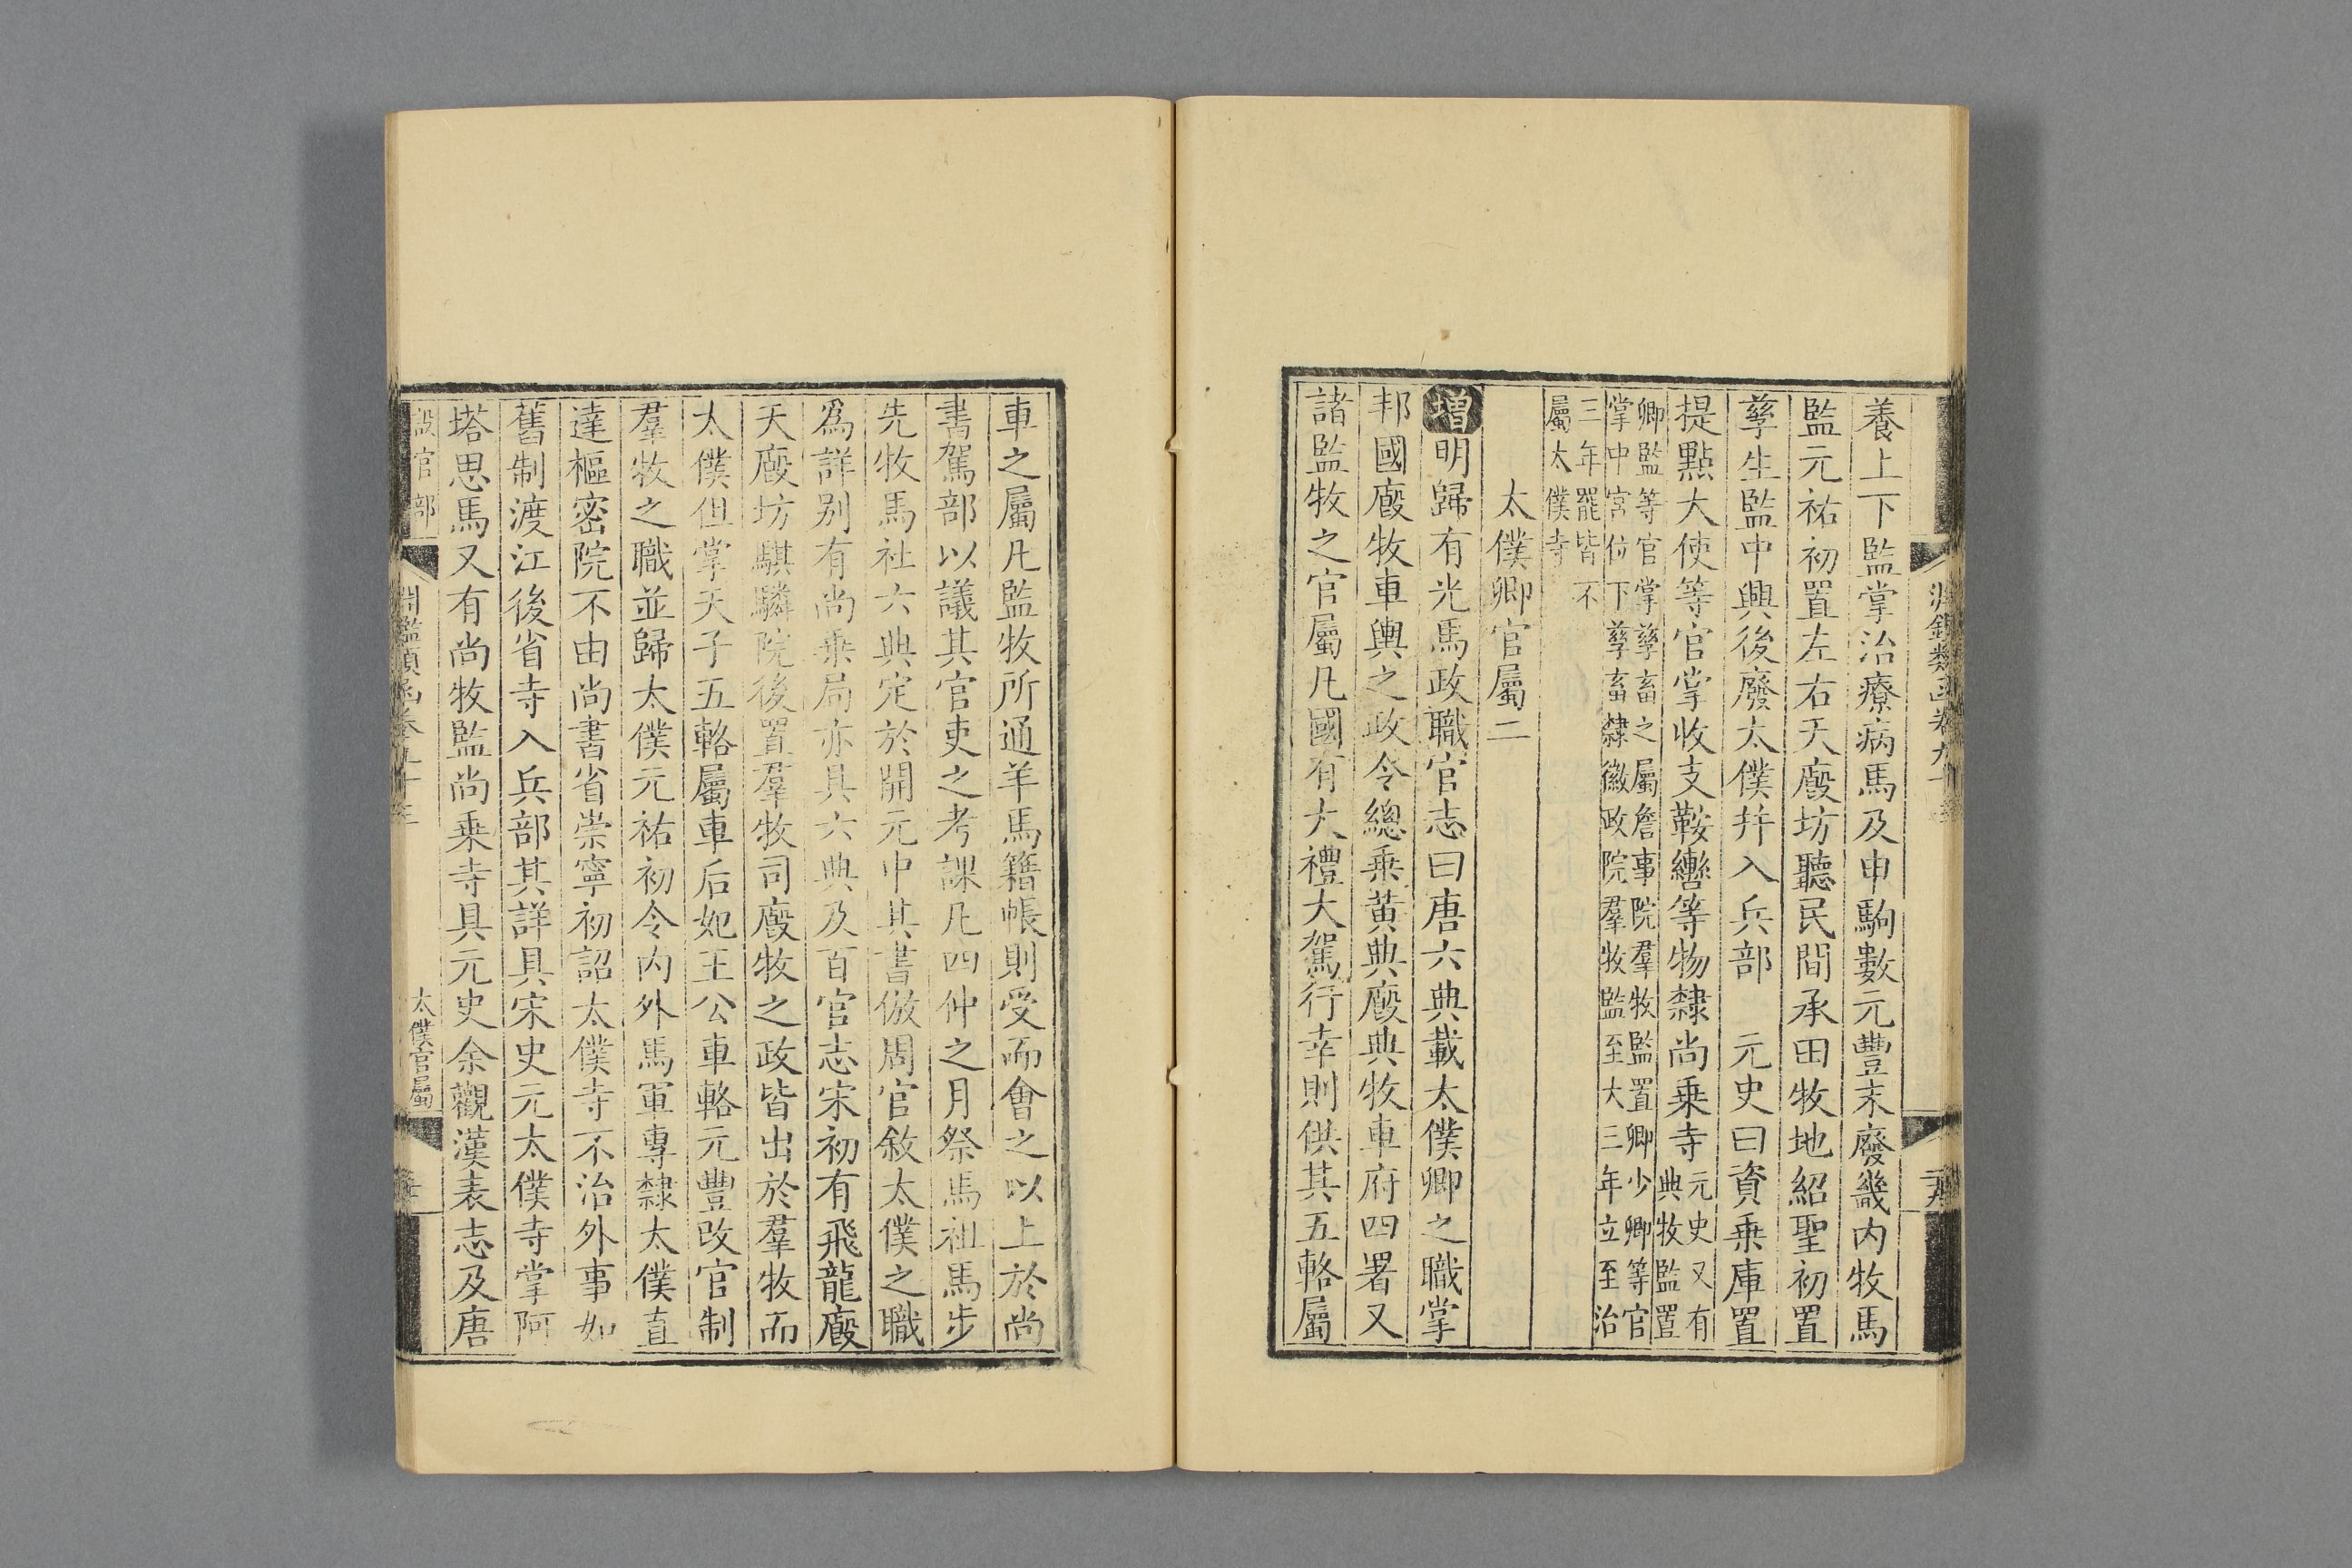 養上下監掌治療病馬及申駒數元豐末廢畿内牧馬
監元祐初置左右天廏坊聽民間承田牧地紹聖初置
孳生監中興後廢太僕幷入兵部　元史曰資乗庫置
提點大使等官掌收支鞍轡等物隸尚乗寺元史又有
典牧監置
卿監等官掌孳畜之屬詹事院羣牧監置卿少卿等官
掌中宮位下孳畜隸徽政院羣牧監至大三年立至治
三年罷皆不
屬太僕寺
太僕卿官屬二
增明歸有光馬政職官志曰唐六典載太僕卿之職掌
邦國廏牧車輿之政令總乗黃典廏典牧車府四署又
諸監牧之官屬凡國有大禮大駕行幸則供其五輅屬
車之屬凡監牧所通羊馬籍帳則受而會之以上於尚
書駕部以議其官吏之考課凡四仲之月祭馬祖馬步
先牧馬社六典定於開元中其書倣周官敘太僕之職
為詳别有尚乗局亦具六典及百官志宋初有飛龍廏
天廏坊騏驎院後置羣牧司廏牧之政皆出於羣牧而
太僕但掌天子五輅屬車后妃王公車輅元豐改官制
羣牧之職並歸太僕元祐初令内外馬軍專隸太僕直
達樞密院不由尚書省崇寧初詔太僕寺不治外事如
舊制渡江後省寺入兵部其詳具宋史元太僕寺掌阿
塔思馬又有尚牧監尚乗寺具元史余觀漢表志及唐
設官部
淵鑑類函卷九十三
太僕官屬